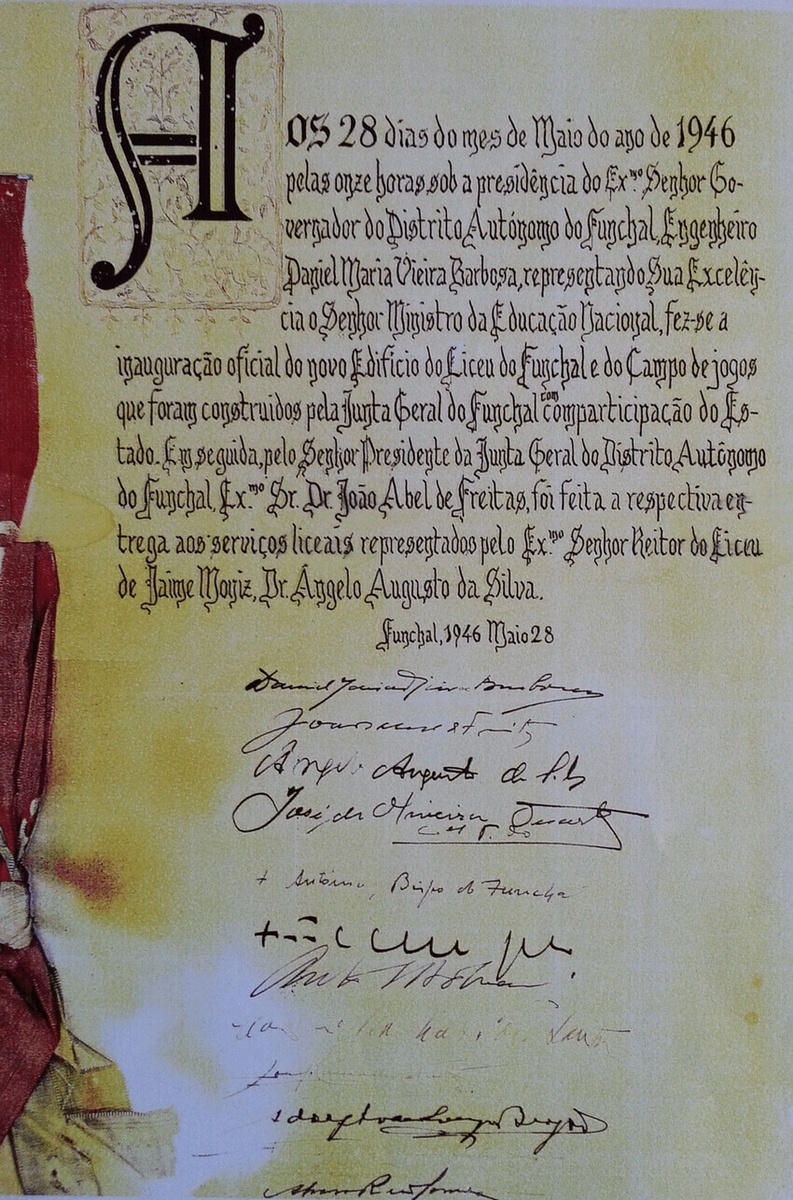 AOS 28 dias do mes de Maio do ano de 1946
pelas onze horas sob a presidência do Ex.mo Senhor Go-
vernador do Distrito Autónomo do Funchal, Engenheiro
Daniel Maria Vieira Barbosa, representando Sua Excelên-
cia o Senhor Ministro da Educação Nacional, fez-se a
inauguração oficial do novo Edifício do Liceu do Funchal e do Campo de jogos
que foram construidos pela Junta Geral do Funchal com comparticipação do Es-
tado. Em seguida, pelo Senhor Presidente da Junta Geral do Distrito Autónomo
do Funchal, Ex.mo Sr. Dr. João Abel de Freitas, foi feita a respectiva en-
trega aos serviços liceais representados pelo Ex.mo Senhor Reitor do Liceu
de Jaime Moniz, Dr. Ângelo Augusto da Silva.
Funchal, 1946 Maio 28
Daniel Maria Vieira Barbosa
Angelo Augusto da Silva
José de Oliveira Duarte
+ António, Bispo do Funchal